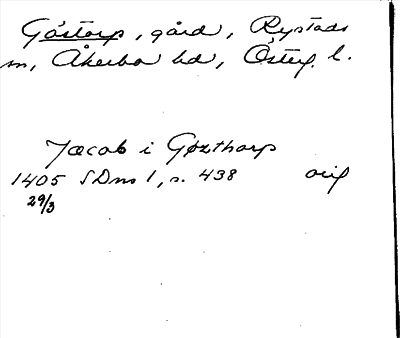 Gåstorp, gård, Rystads
sn, Åkerbo hd, Österg. l.
Jacob i Gøzthorp
1405 SDns 1, s. 438 orig
29/3